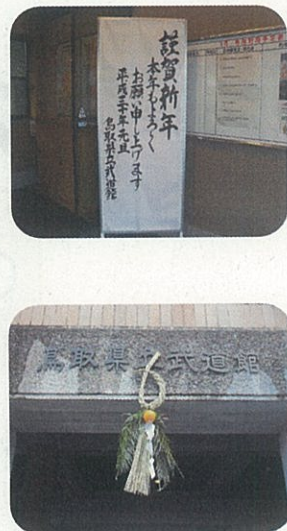 謹賀新年
本年もよろしく
お願い申し上げます
平成三十年元旦
鳥取県立武道館
鳥取県立武道館